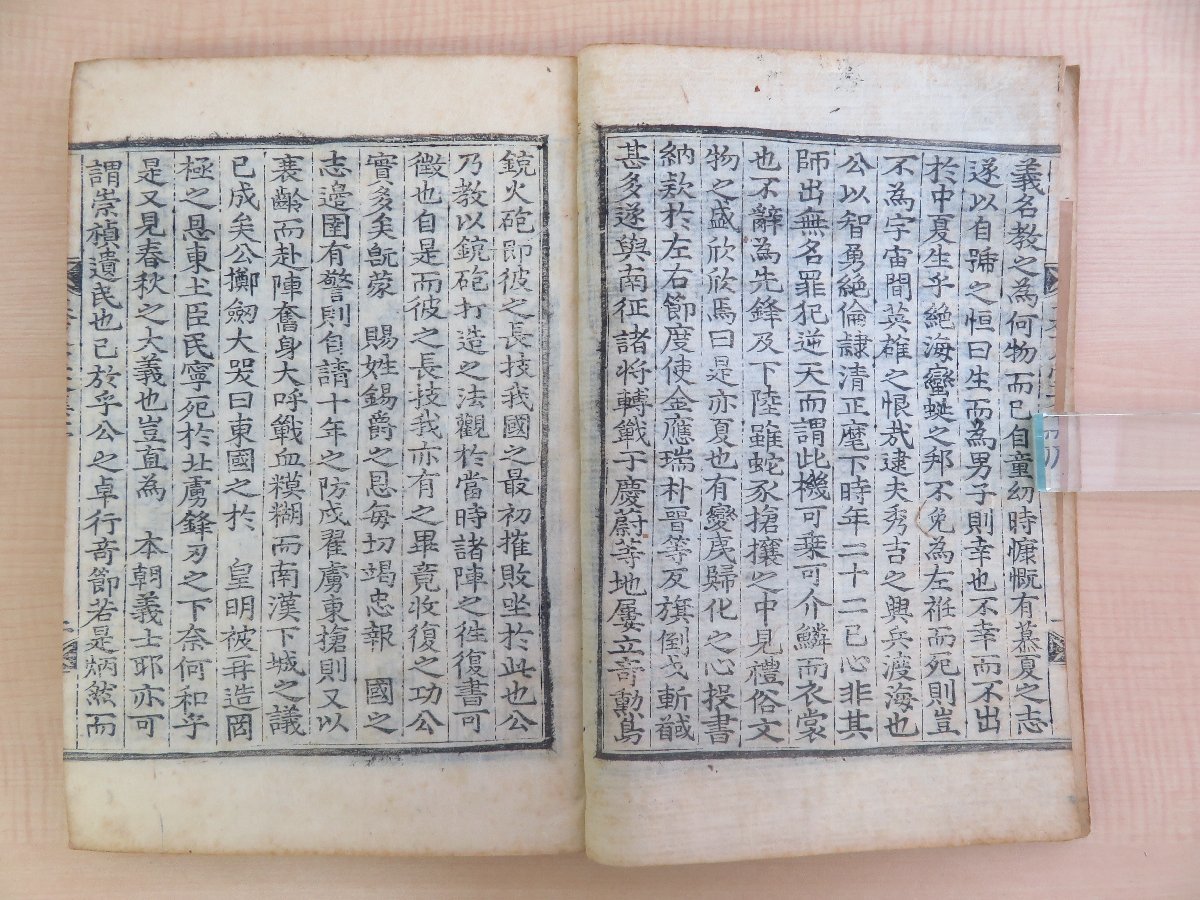 義名敎之爲何物而已自童幼時慷慨有慕夏之志
遂以自號之恒曰生而爲男子則幸也不幸而不出
於中夏生乎絶海蠻蜒之邦不免爲左袵而死則豈
不爲宇宙間英雄之恨㢤逮夫秀吉之興兵渡海也
公以智勇絶倫隷清正麾下時年二十二已心非其
師出無名罪犯逆天而謂此機可乗可介鱗而衣裳
也不辭爲先鋒及下陸雖蛇豕搶攘之中見禮俗文
物之盛欣欣焉曰是亦夏也有變夷歸化之心投書
納欵於左右節度使金應瑞朴晋等反旗倒戈斬馘
甚多遂與南征諸將轉戰于慶蔚等地屢立竒勳鳥
銃火砲即彼之長技我國之最初摧敗坐於此也公
乃教以銃砲打造之法觀於當時諸陣之徃復書可
徵也自是而彼之長技我亦有之畢竟收復之功公
實多矣旣蒙 賜姓錫爵之恩每切竭忠報 國之
志邊圉有警則自請十年之防戍翟虜東搶則又以
衰齡而赴陣奮身大呼戰血糢糊而南漢下城之議
已成矣公擲劒大哭曰東國之於 皇明被再造罔
極之恩東土臣民寧死於北虜鋒刃之下奈何和乎
是又見春秋之大義也豈直爲 本朝義士耶亦可
謂崇禎遺民也已於乎公之卓行竒節若是炳然而